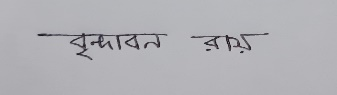 বৃন্দাবন রায়